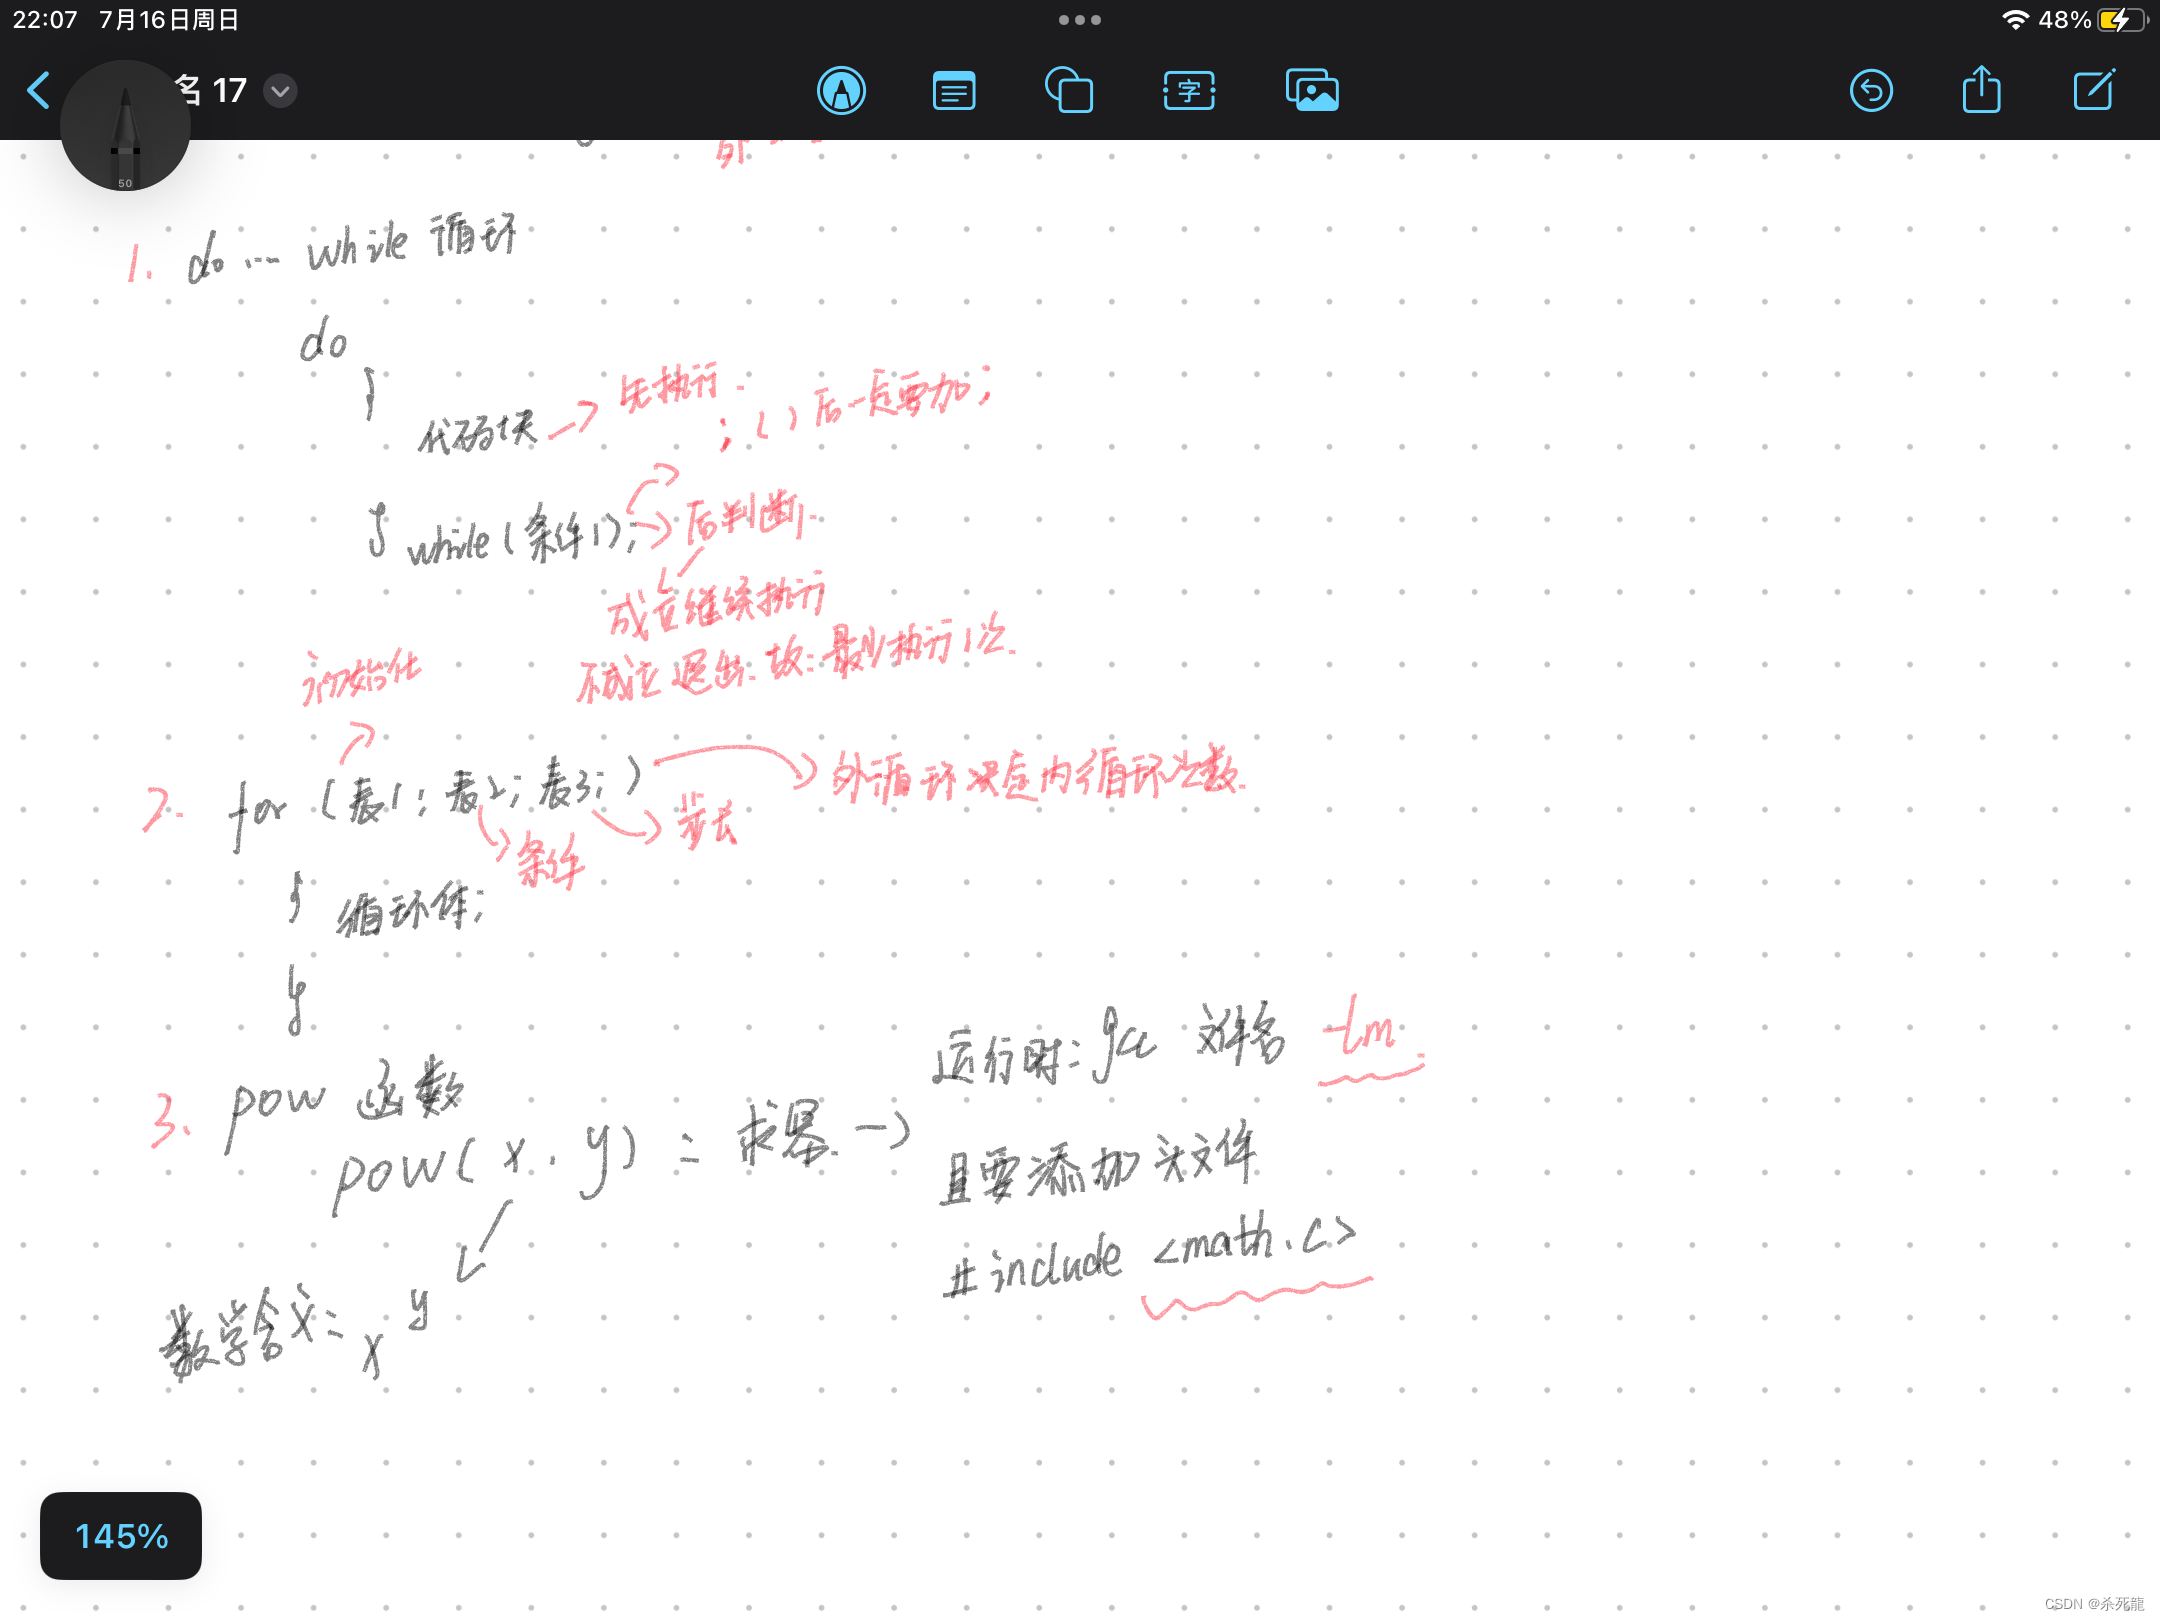 22:07 7月16日周日
48%
名 17
字
50
1. do … while 循环
do
{
代码块 → 先执行.
; ( ) 后一定要加;
} while (条件1); 后判断.
成立继续执行
不成立退出. 故: 最少执行1次.
初始化
2. for (表1; 表2; 表3;) 外循环决定内循环次数.
条件
步长
{ 循环体;
}
3. pow 函数
pow( x , y ) = 求幂. →
运行时: gcc 文件名 -lm
且要添加头文件
#include <math.c>
数学含义: x y
145%
CSDN @杀死龍